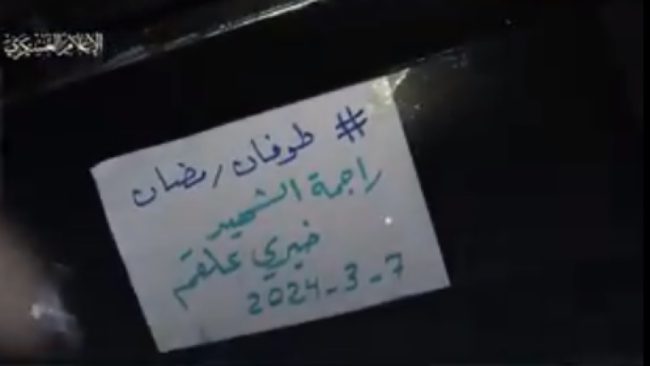 الإعلام العسكري
# طوفان رمضان
راجمة الشهيد
خيري علقم
2024-3-7